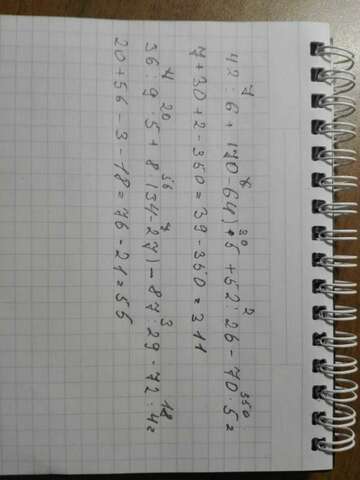 42 : 6 + (70 - 64) · 5 + 52 : 26 - 70 · 5 =
7 + 30 + 2 - 350 = 39 - 350 = 311
36 : 9 · 5 + 8 (34 - 27) - 87 : 29 - 72 : 4 =
20 + 56 - 3 - 18 = 76 - 21 = 55